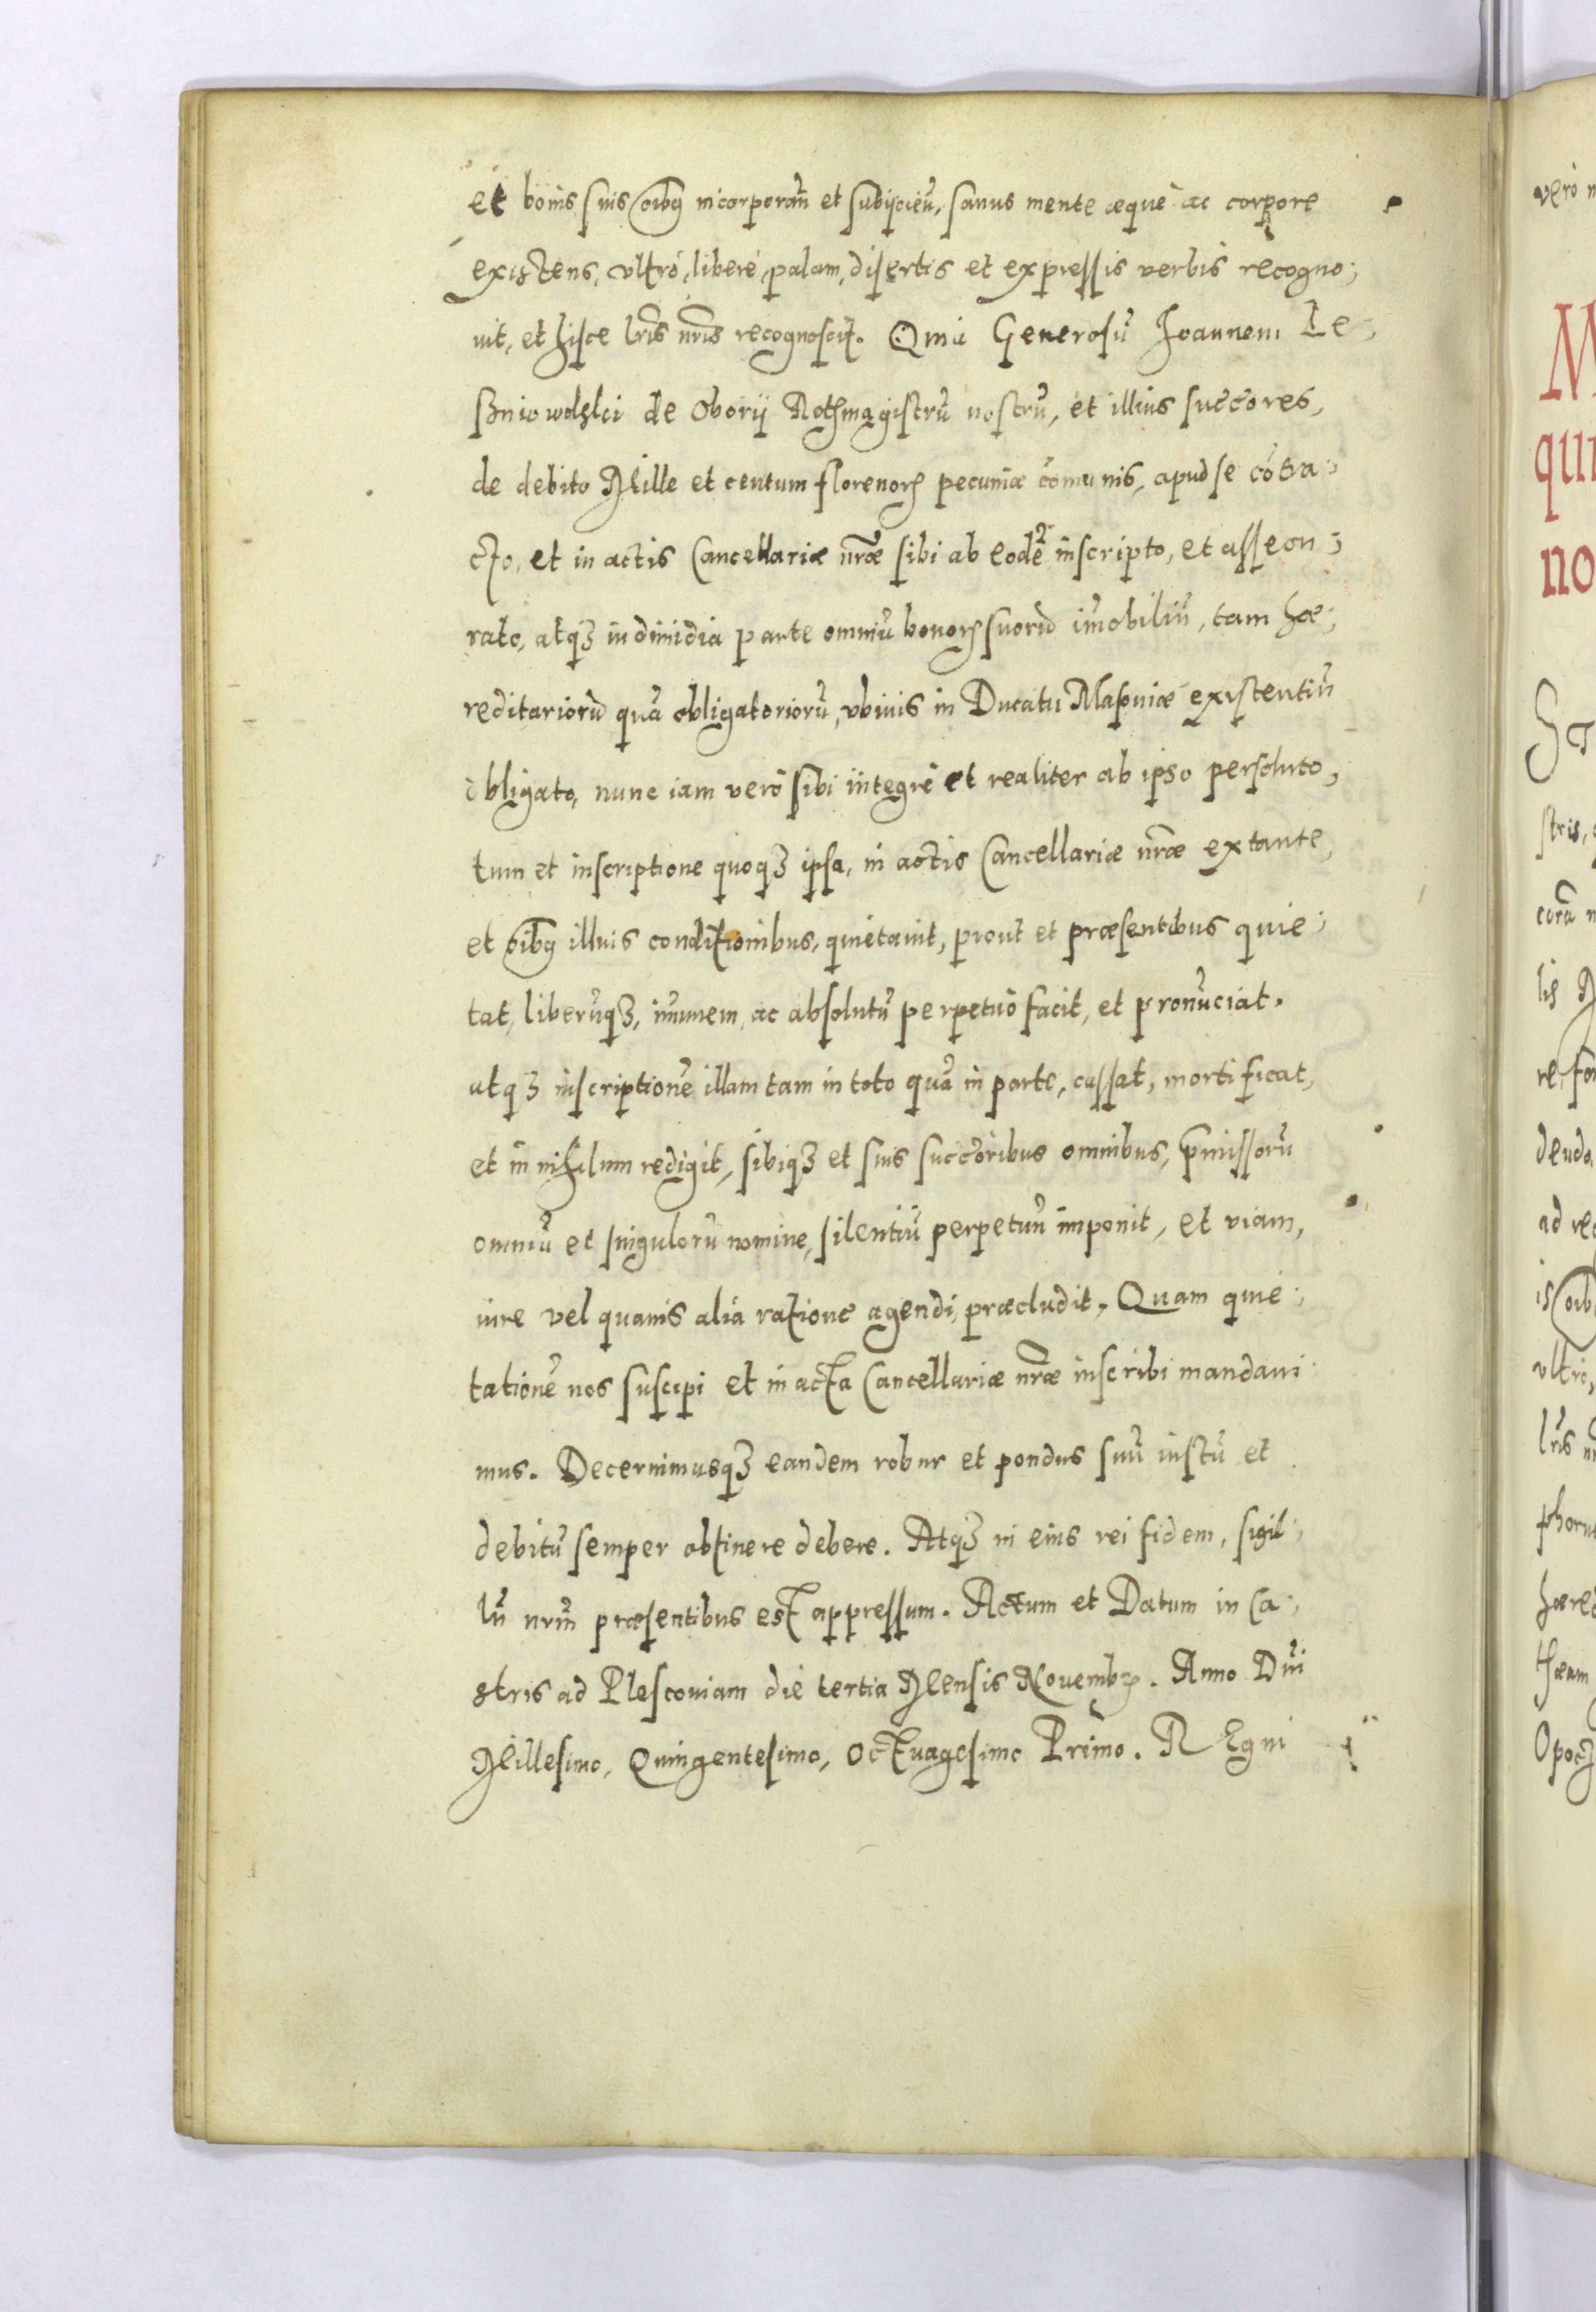 et bonis suis oib9 incorporan̄ et subijcień, sanus mente æque ac corpore
existens, vltrò, liberè, palam, disertis et expressis verbis recogno:
uit, et hisce lr̃is nr̃is recognoscit. Quia Generosũ Joannem Le:
szniowolski de Oborij Rothmagistrũ nostrũ, et illius succ̃ores,
de debito Mille et centum florenorꝝ pecuniæ cõmunis, apud se cõtra:
cto, et in actis Cancellariæ nr̃æ sibi ab eodẽ inscripto, et asseon:
rato, atqꝫ in dimidia parte omniũ bonorꝝ suorũ im̃obiliũ, tam hæ:
reditariorũ quã obligatoriorũ, vbiuis in Ducatu Masouiæ existentiũ
obligato, nunc iam verò sibi integrè et realiter ab ipso persoluto,
tum et inscriptione quoqꝫ ipsa, in actis Cancellariæ nr̃æ extante,
et oib9 illius conditionibus, quietauit, prout et præsentibus quie:
tat, liberũqꝫ, im̃unem, ac absolutũ perpetuò facit, et pronũciat.
atqꝫ inscriptionẽ illam tam in toto quã in parte, cassat, mortificat,
et in nihilum redigit, sibiqꝫ et suis succ̃oribus omnibus, p̃missorũ
omniũ et singulorũ nomine, silentiũ perpetuũ imponit, et viam,
iure vel quauis alia ratione agendi, præcludit. Quam quie:
tationẽ nos suscipi et in acta Cancellariæ nr̃æ inscribi mandaui:
mus. Decernimusqꝫ eandem robur et pondus suũ iustũ et
debitũ semper obtinere debere. Atqꝫ in eius rei fidem, sigil:
lũ nr̃ũ præsentibus est appressum. Actum et Datum in Ca:
stris ad Plescouiam die tertia Mensis Nouembꝝ. Anno Dñi
Millesimo, Quingentesimo, Octuagesimo Primo. REgni